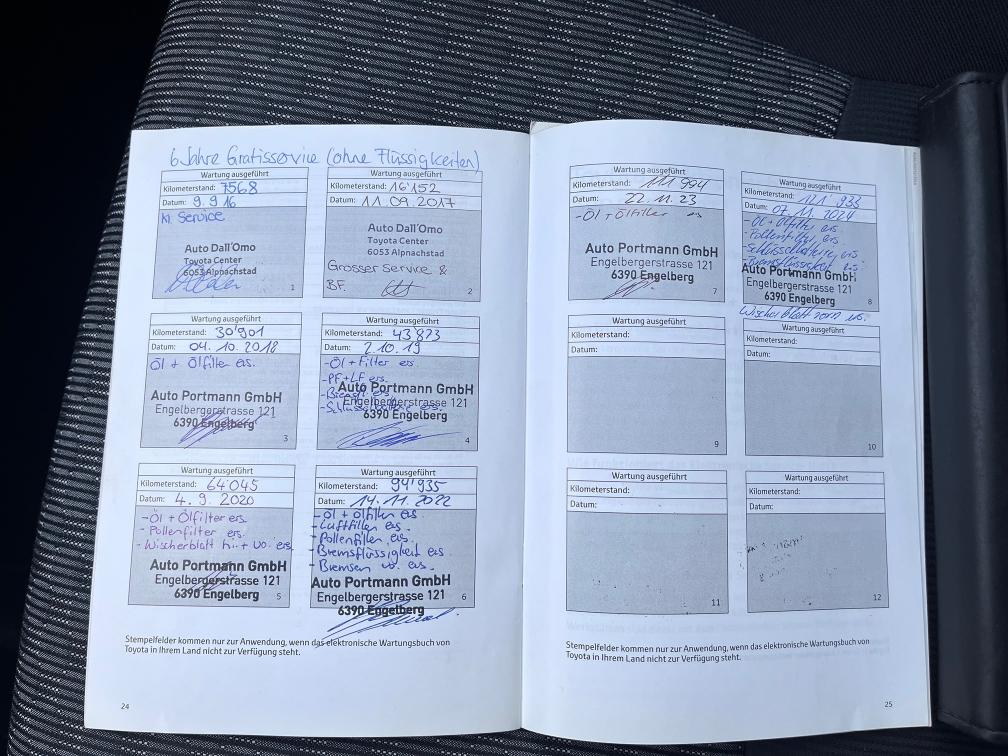 6 Jahre Gratisservice (ohne Flüssigkeiten)
Wartung ausgeführt
Kilometerstand: 7568
Datum: 9.9.16
Kl. Service
Auto Dall'Omo
Toyota Center
6053 Alpnachstad
1
Wartung ausgeführt
Kilometerstand: 16'152
Datum: 11.09.2017
Auto Dall'Omo
Toyota Center
6053 Alpnachstad
Grosser Service &
BF.
2
Wartung ausgeführt
Kilometerstand: 30'901
Datum: 04.10.2018
Öl + Ölfilter ers.
Auto Portmann GmbH
Engelbergerstrasse 121
6390 Engelberg
3
Wartung ausgeführt
Kilometerstand: 43'873
Datum: 2.10.19
-Öl + Filter ers.
-PF+LF ers.
Auto Portmann GmbH
Engelbergerstrasse 121
6390 Engelberg
4
Wartung ausgeführt
Kilometerstand: 64'045
Datum: 4.9.2020
-Öl + Ölfilter ers.
-Pollenfilter ers.
-Wischerblatt hi.+ vo. ers.
Auto Portmann GmbH
Engelbergerstrasse 121
6390 Engelberg
5
Wartung ausgeführt
Kilometerstand: 94'935
Datum: 14.11.2022
-Öl + Ölfilter ers.
-Luftfilter ers.
-Pollenfilter ers.
-Bremsflüssigkeit ers.
-Bremsen vo. ers.
Auto Portmann GmbH
Engelbergerstrasse 121
6390 Engelberg
6
Stempelfelder kommen nur zur Anwendung, wenn das elektronische Wartungsbuch von
Toyota in Ihrem Land nicht zur Verfügung steht.
24
Wartung ausgeführt
Kilometerstand: 111'994
Datum: 22.11.23
-Öl + Ölfilter ers
Auto Portmann GmbH
Engelbergerstrasse 121
6390 Engelberg
7
Wartung ausgeführt
Kilometerstand: 121'933
Datum: 07.11.2024
-Öl + Ölfilter ers.
-Pollenfilter ers.
-Bremsflüssigkeit ers
Auto Portmann GmbH
Engelbergerstrasse 121
6390 Engelberg
8
Wischerblatt vorn ers.
Wartung ausgeführt
Kilometerstand:
Datum:
9
Wartung ausgeführt
Kilometerstand:
Datum:
10
Wartung ausgeführt
Kilometerstand:
Datum:
11
Wartung ausgeführt
Kilometerstand:
Datum:
12
Stempelfelder kommen nur zur Anwendung, wenn das elektronische Wartungsbuch von
Toyota in Ihrem Land nicht zur Verfügung steht.
25